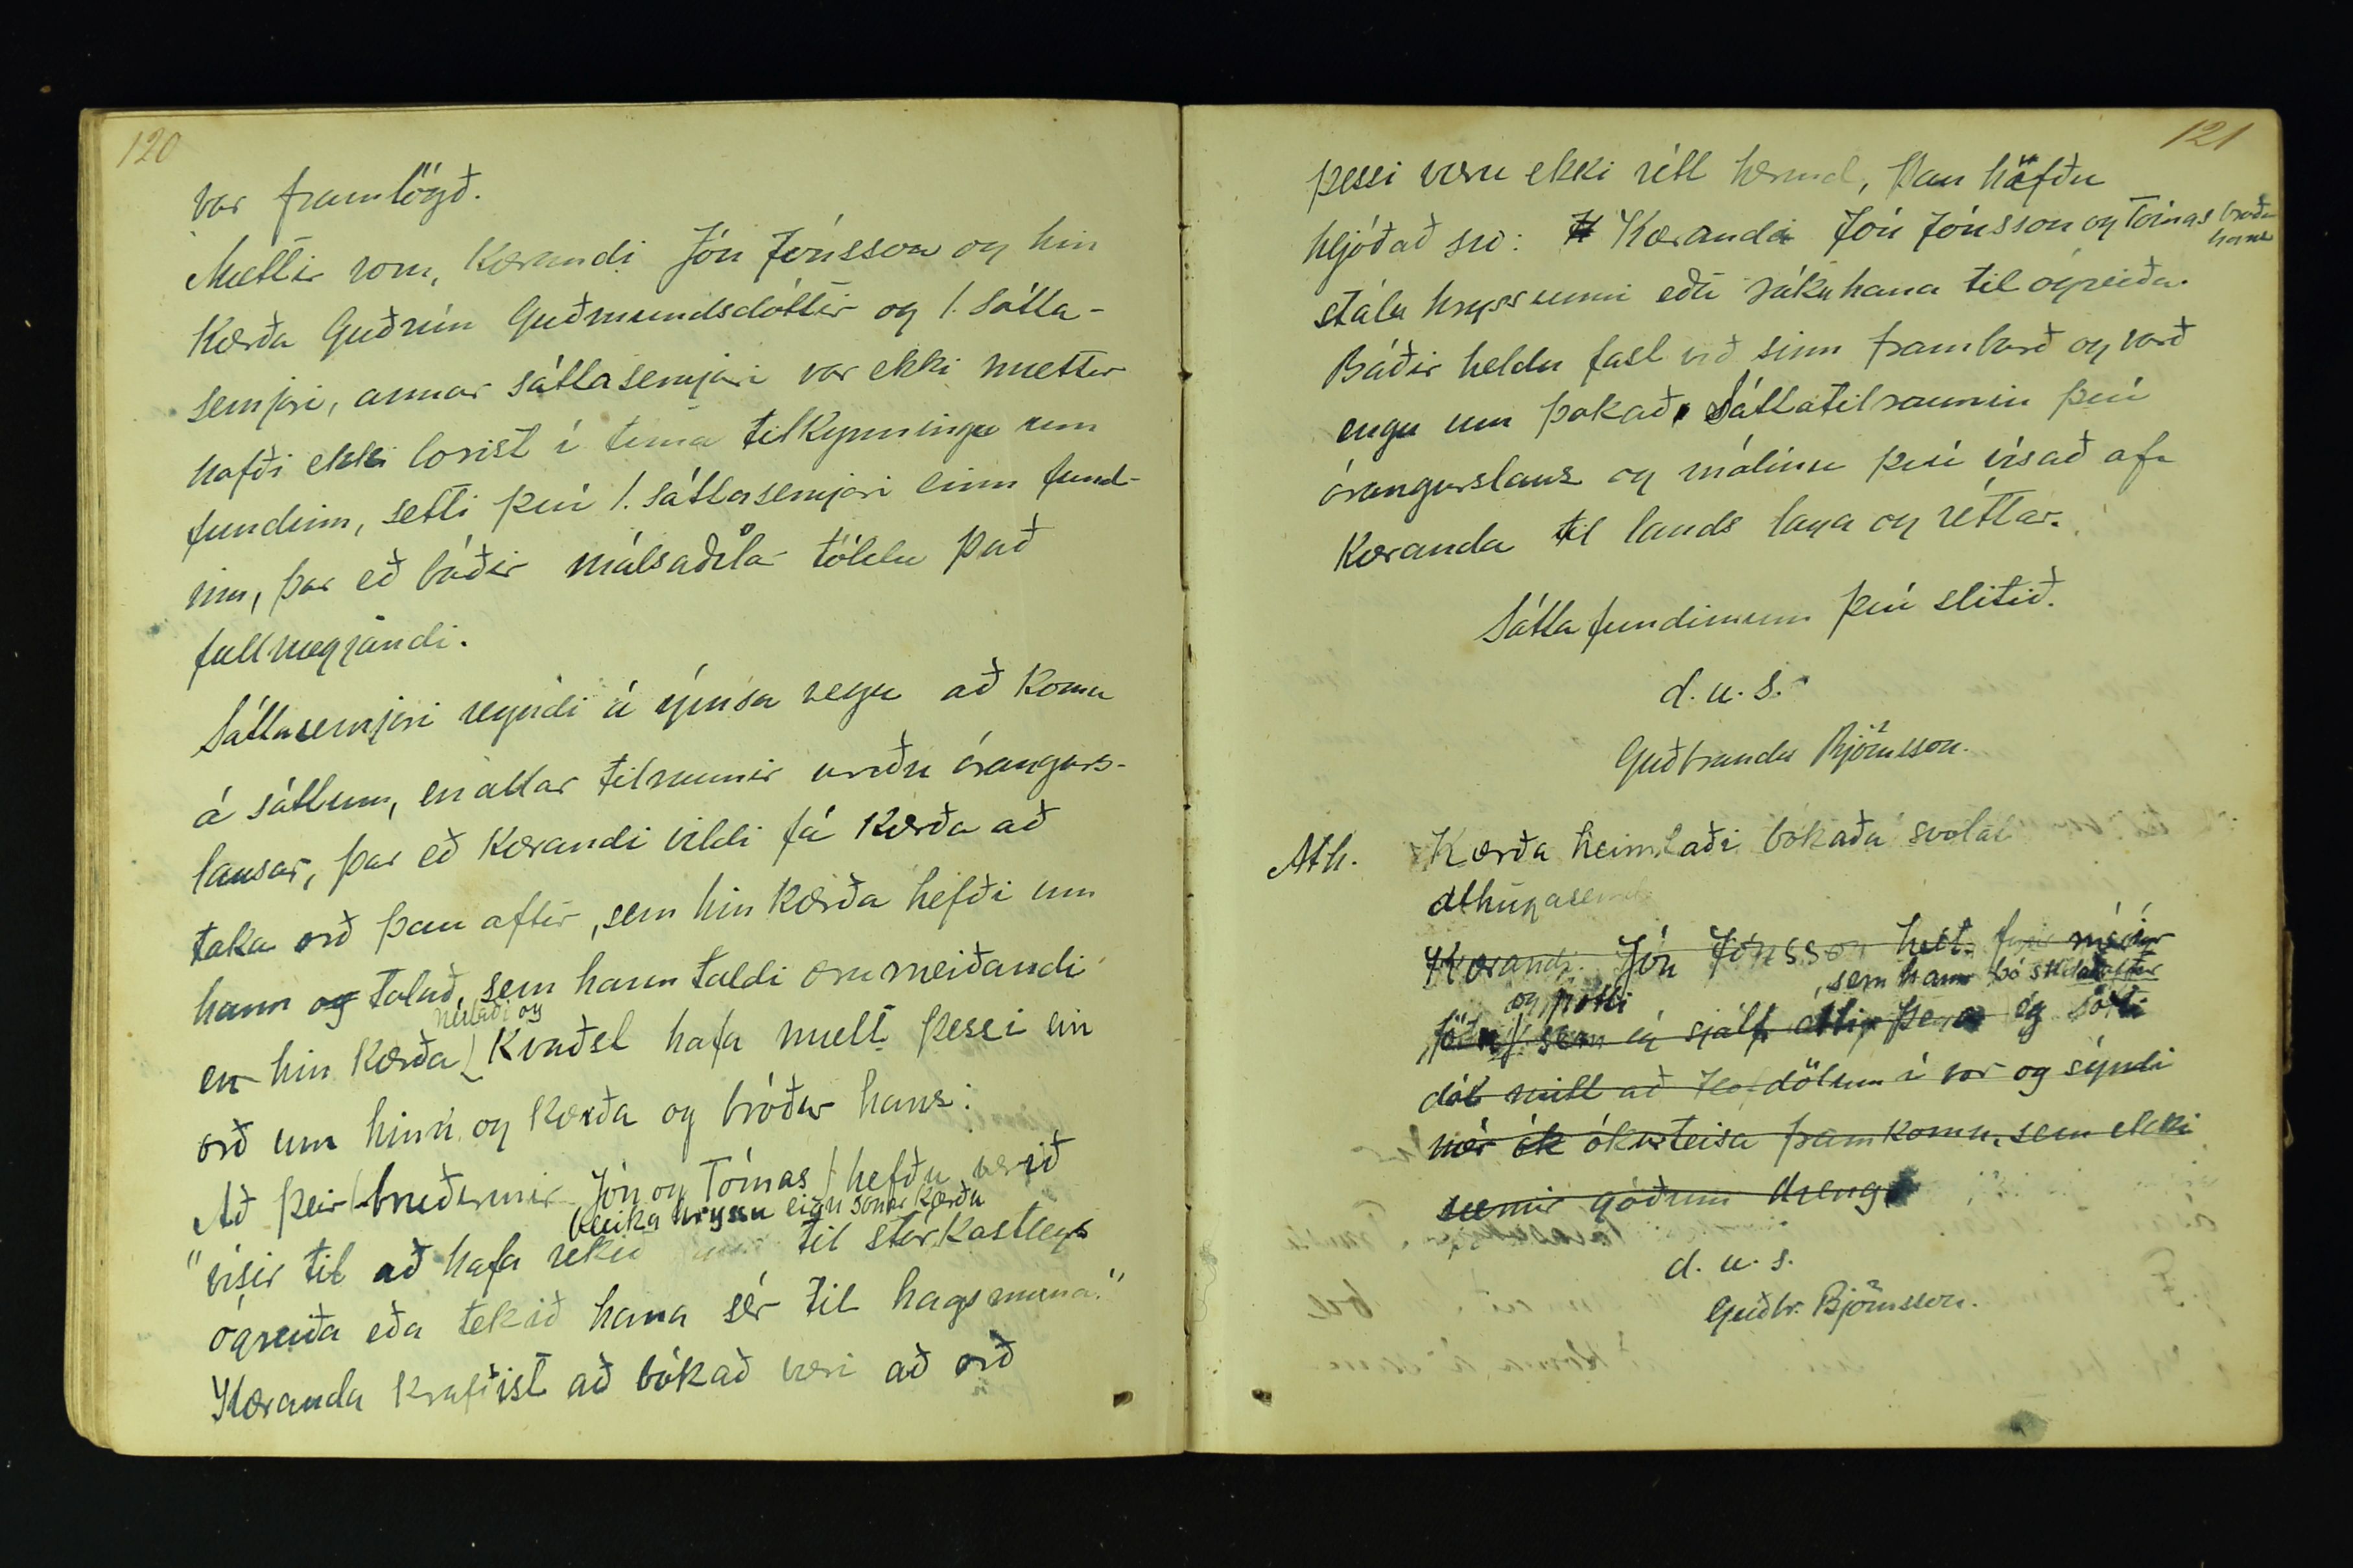 120
var framlögð.
Mættir voru, Kærandi Jón Jónsson og hin
Kærða Guðrún Guðmundsdóttir og 1. sátta-
semjari, annar sáttasemjari var ekki mættur
hafði ekki borist í tíma tilkynningu um
fundinn, setti því 1. sáttasemjari einn fund-
inn, þar eð báðir málsaðilar töldu það
fullnægjandi.
Sáttasemjari reyndi á ýmsa vegu að koma
á sáttum, en allar tilraunir urðu árangurs-
lausar, þar eð Kærandi vildi fá Kærða að
taka orð þau aftur, sem hin Kærða hefði um
hann og talað, sem hann taldi ærumeiðandi
neitaði og
en hin Kærða kvaðst hafa mælt þessi ein
orð um hinn og Kærða og bróður hans:
Að þeir bræðurnir Jón og Tómas hefðu verið
bleika hryssu eign sonar Kærðu
"vísir til að hafa rekið til stórkastlegs
ógreiða eða tekið hana sér til hagsmuna."
Kæranda krafðist að bókað væri að orð
121
þessi væru ekki rétt hermd, þau höfðu
hljóðað svo: Kæranda Jón Jónsson og Tómas bróður
hans
stála hryssunni eða ráku hana til ógreiða.
Báðir heldu fast við sinn framburð og varð
engu um þokað, Sáttatilraunin því
árangurslaus og málinu því vísað af
Kæranda til lands laga og réttar.
Sáttafundinum því slitið.
d. u. s.
Guðbrandur Björnsson.
Ath. Kærða heimtaði bókaða svoláta
athugasemd
Kærandi Jón Jónsson hélt fyrir mér
og potti , sem hann bó síðar
sem ég sjálf átti þegar ég sótti
dót mitt að Hofdölum í vor og sýndi
mér ók ókurteisa framkomu, sem ekki
sæmir góðum dreng
d. u. s.
Guðbr. Björnsson.